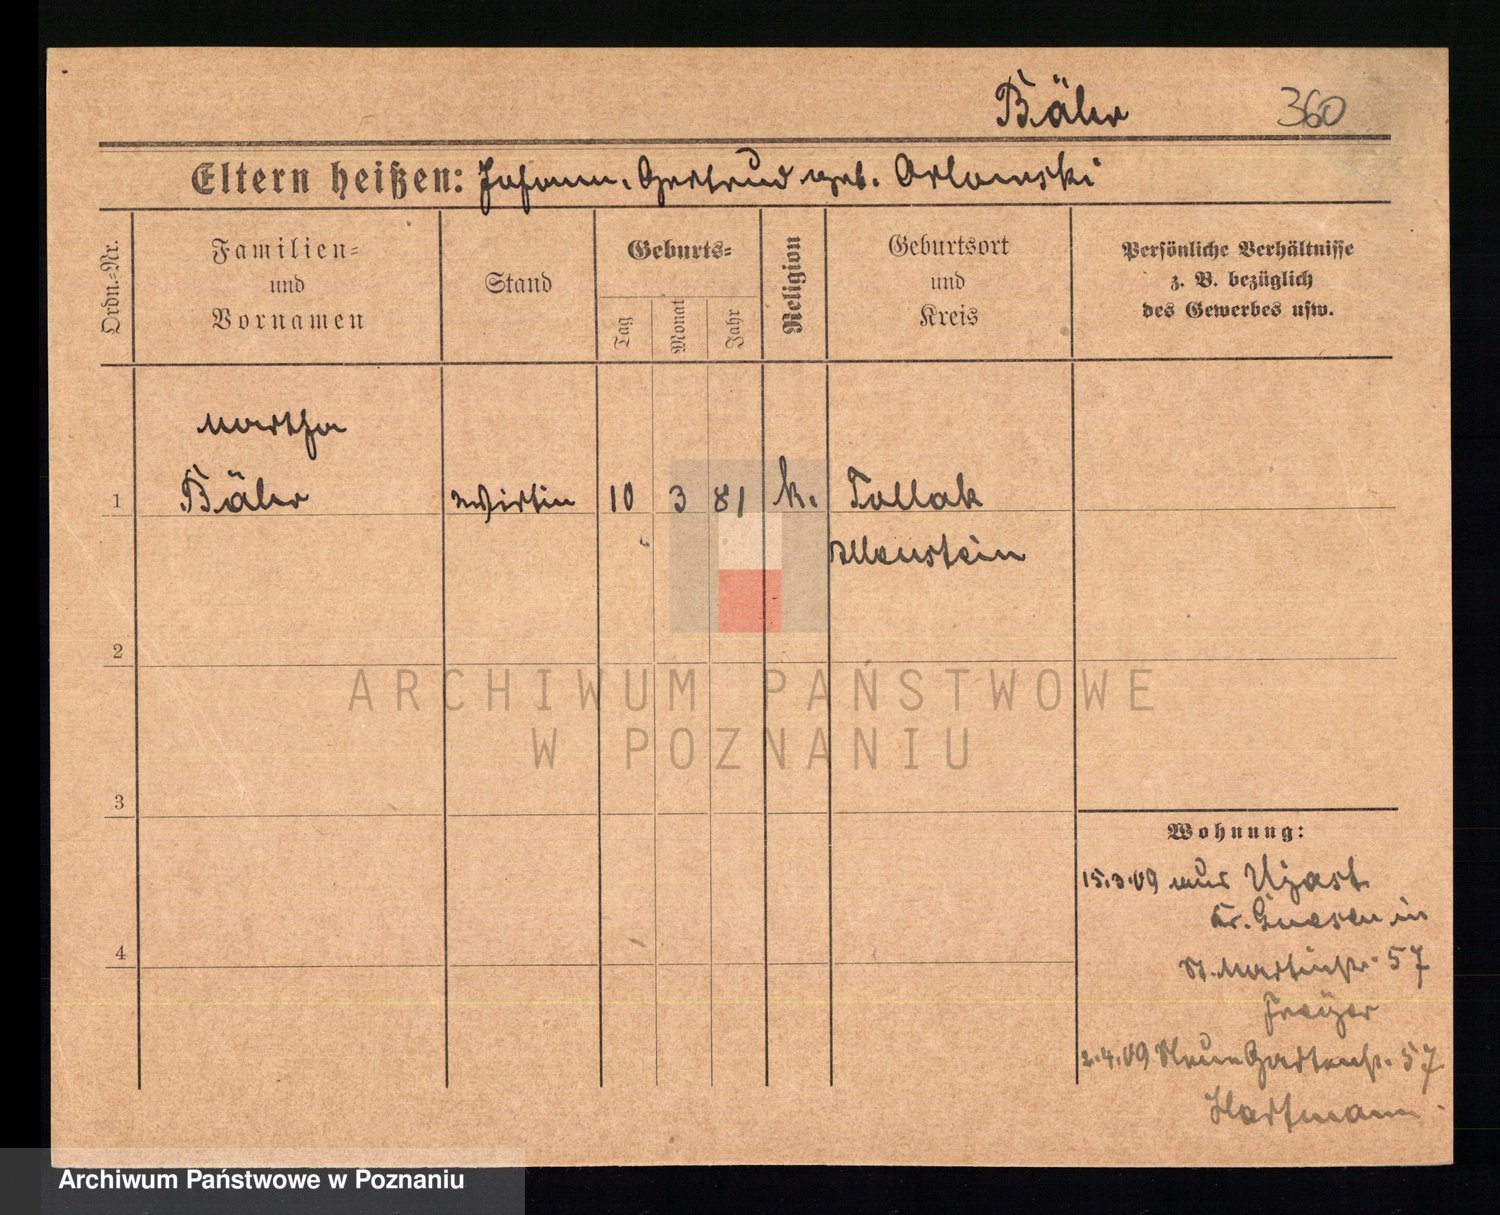 Bähr 360
Eltern heißen: Johann, Gertrud geb. Orlowski
Ordn.-Nr.
Familien-
und
Vornamen
Stand
Geburts-
Tag
Monat
Jahr
Religion
Geburtsort
und
Kreis
Persönliche Verhältnisse
z. B. bezüglich
des Gewerbes usw.
Martha
1 Bähr Wirtin 10 3 81 k. Tollak
Allenstein
2
ARCHIWUM PAŃSTWOWE
W POZNANIU
3
Wohnung:
15.3.09 aus Ujast
Kr. Gnesen in
St. Martinstr. 57
Freyer
4
2.4.09 Neue Gartenstr. 57
Hartmann
Archiwum Państwowe w Poznaniu